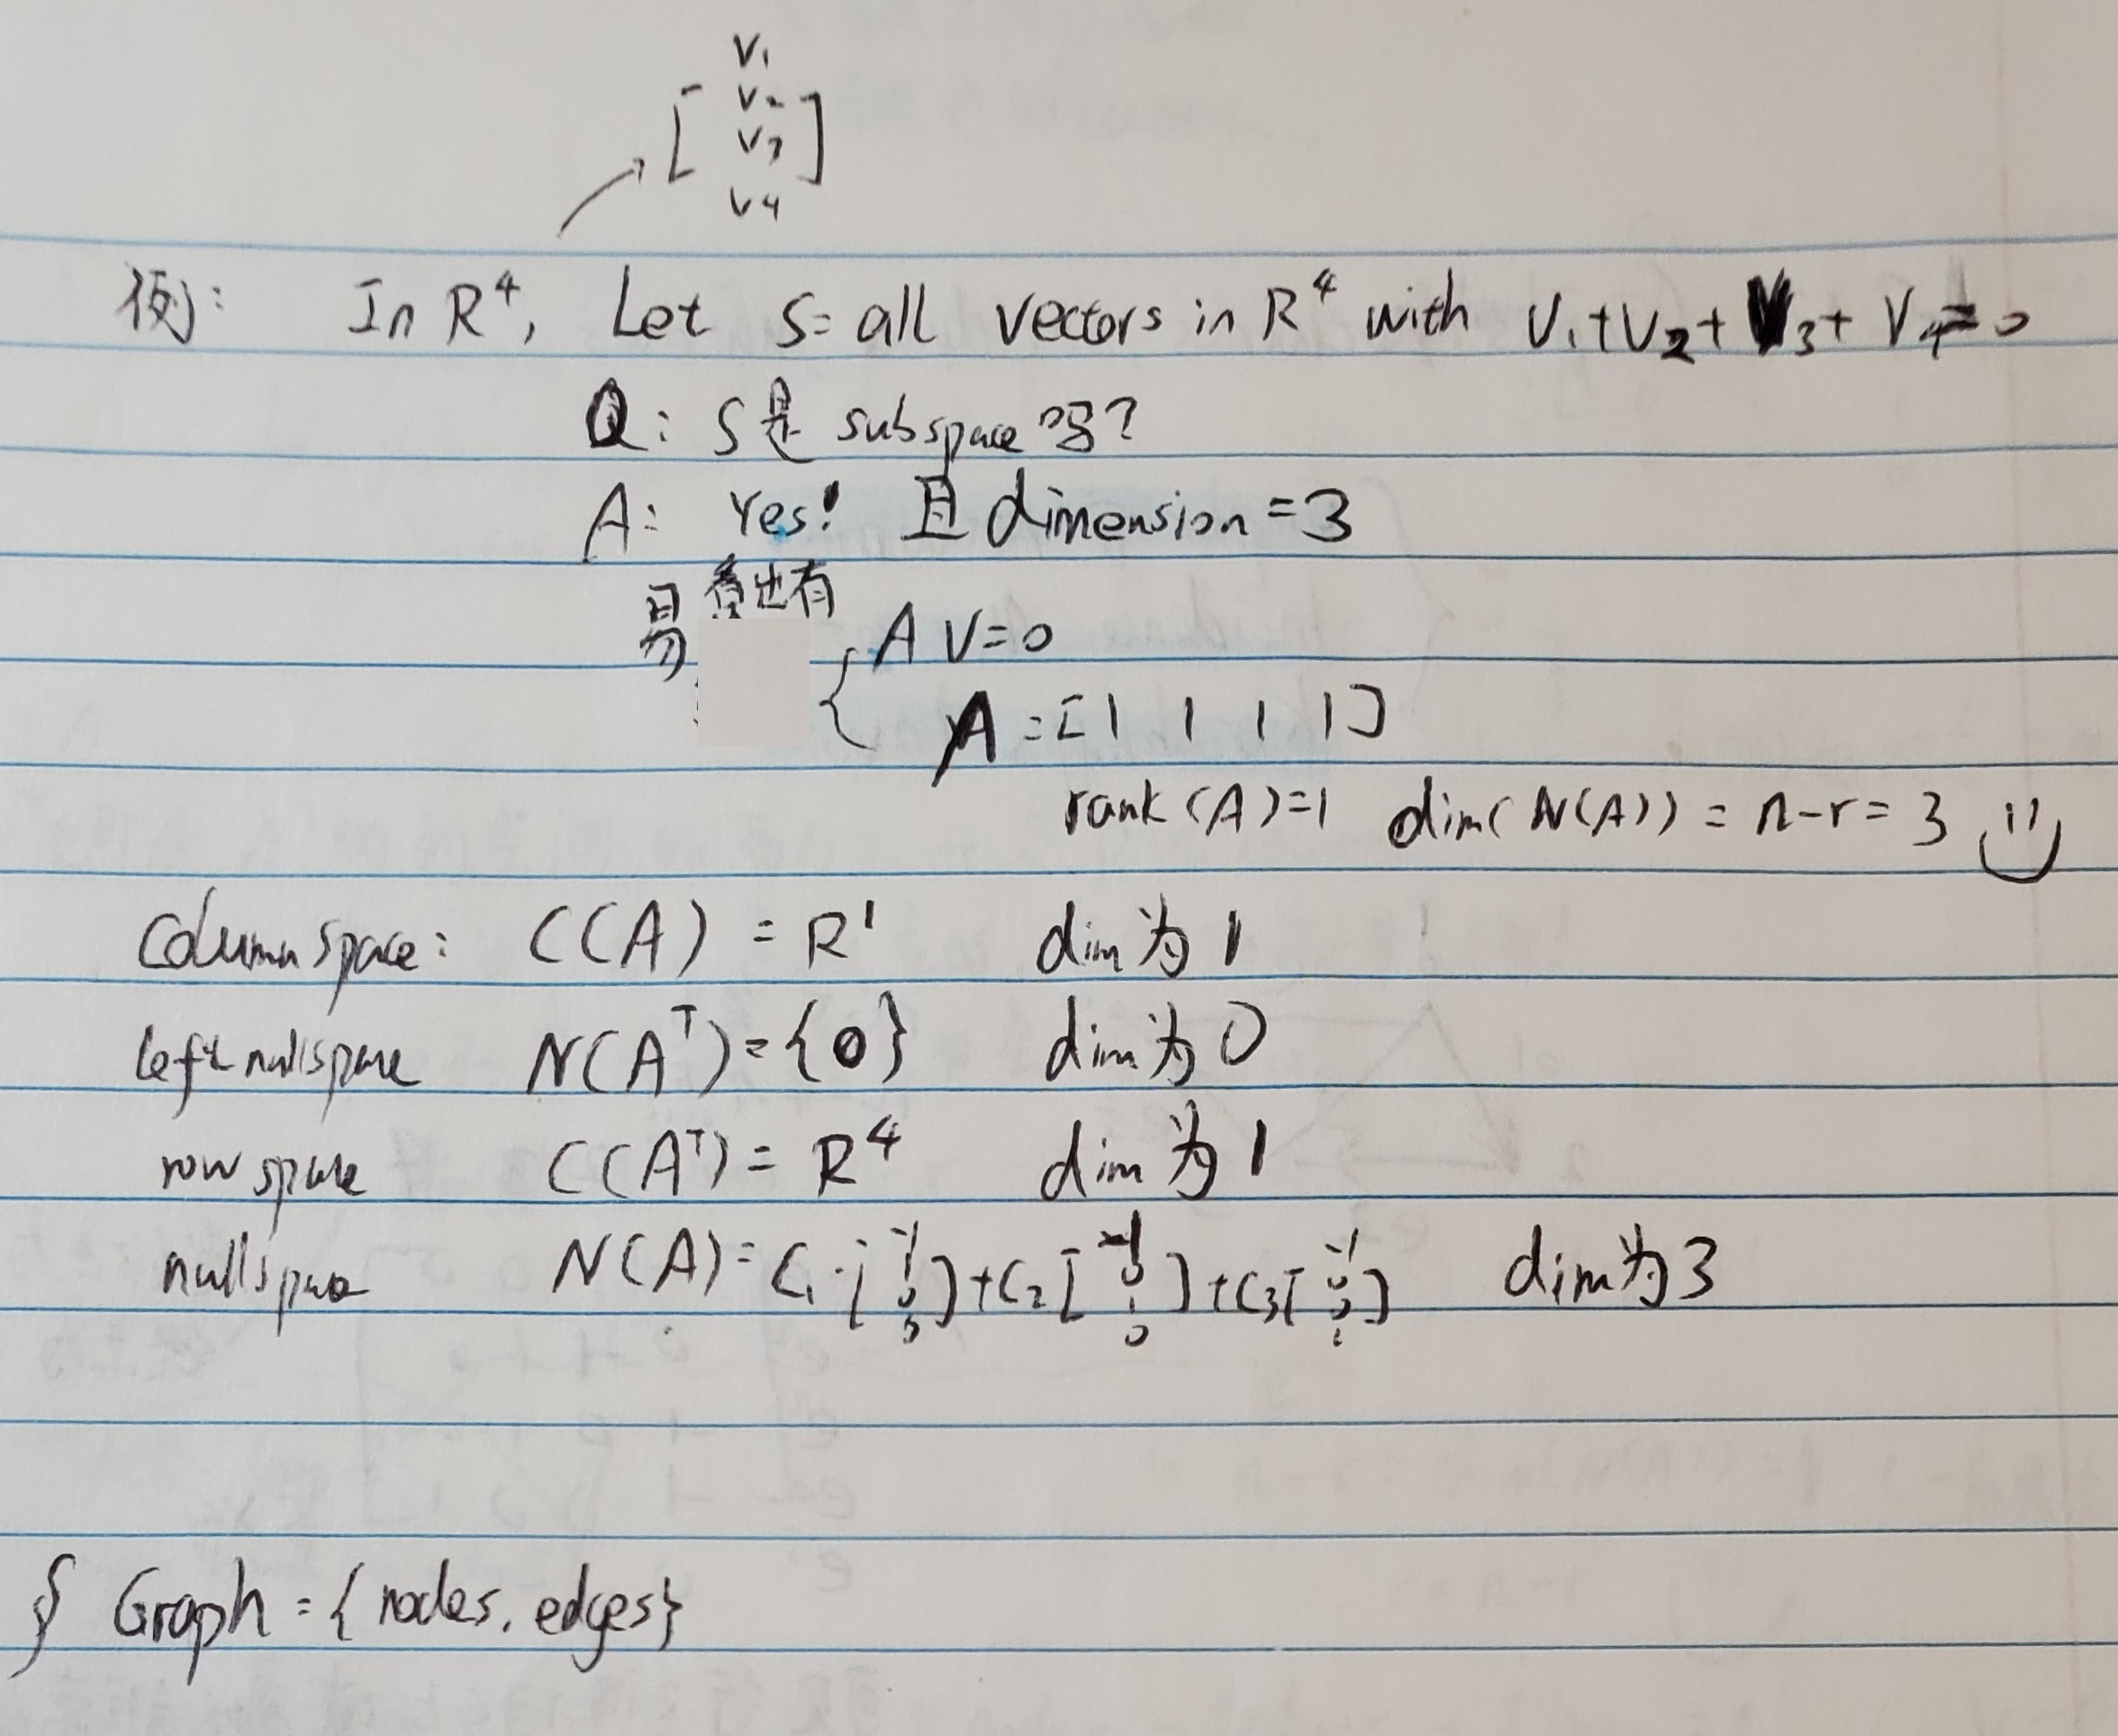 [V₁ V₂ V₃ V₄]
例: In R⁴, Let S= all vectors in R⁴ with V₁+V₂+V₃+V₄=0
Q: S是 subspace吗?
A: Yes! 且 dimension=3
易看出有
{ A V=0
A=[1 1 1 1]
rank(A)=1 dim(N(A))=n-r=3
Column space: C(A) = R¹ dim为1
left nullspace N(Aᵀ)={0} dim为0
row space C(Aᵀ)= R⁴ dim为1
nullspace N(A)= C₁·[-1 1 0 0]+C₂[-1 0 1 0]+C₃[-1 0 0 1] dim为3
§ Graph={nodes, edges}